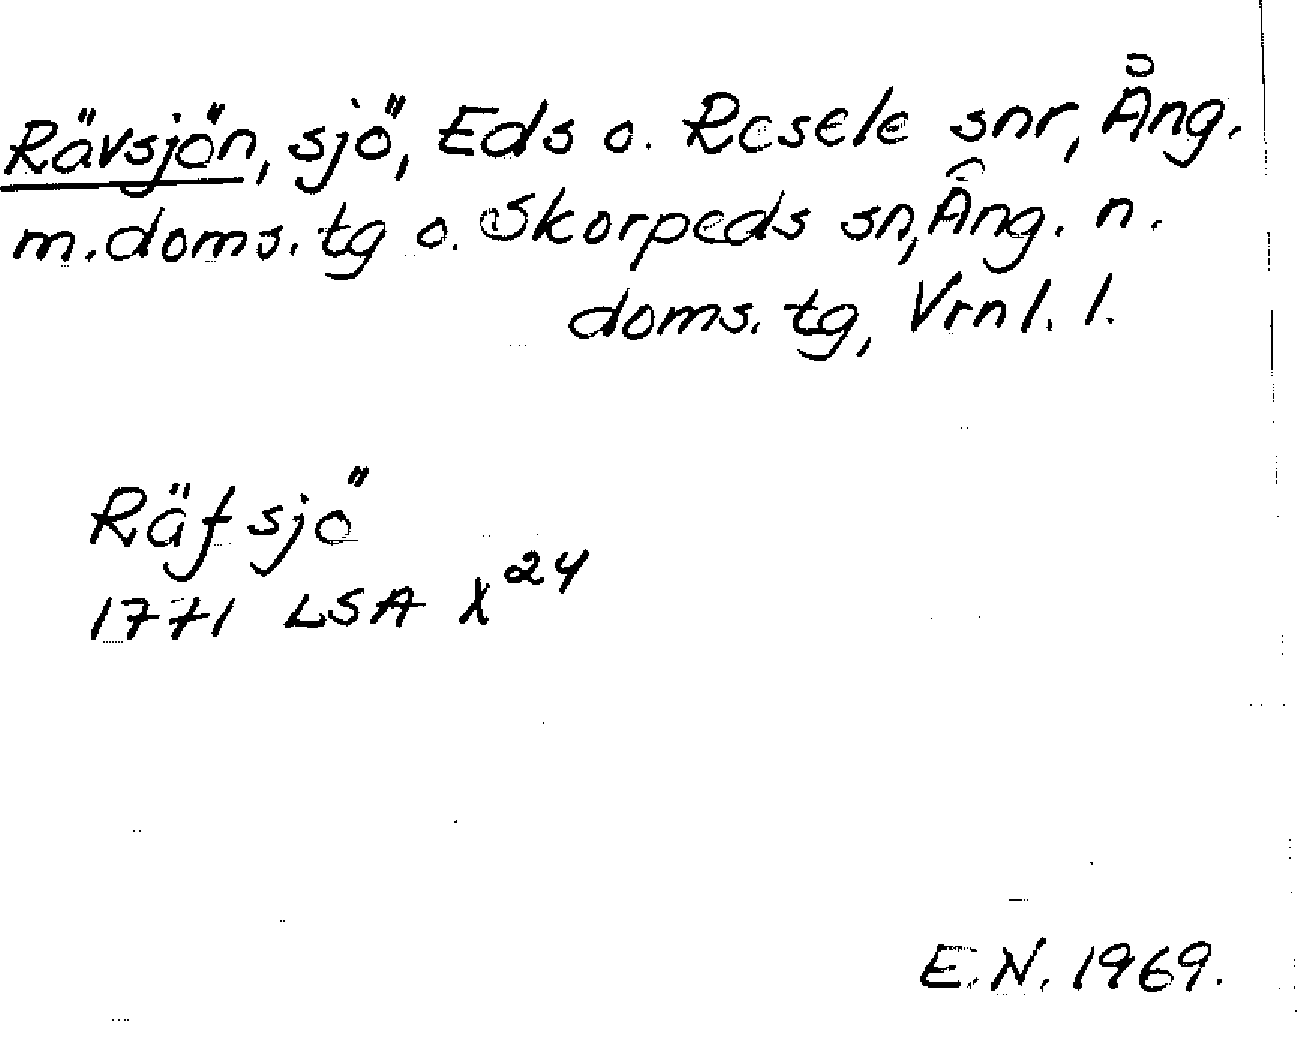 Rävsjön, sjö, Eds o. Resele snr, Ång.
m. doms. tg o. Skorpeds sn, Ång. n.
doms. tg, Vrnl. l.
Räfsjö
1771 LSA X 24
E.N. 1969.